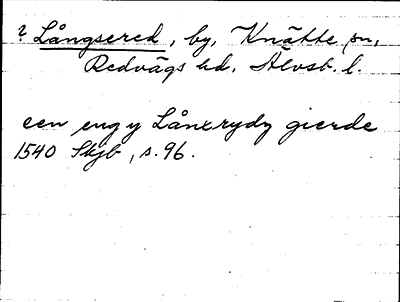 ? Långsered, by, Knätte sn,
Redvägs hd, Älvsb. l.
een eng y Lånxrydz gierde
1540 Skjb, s. 96.